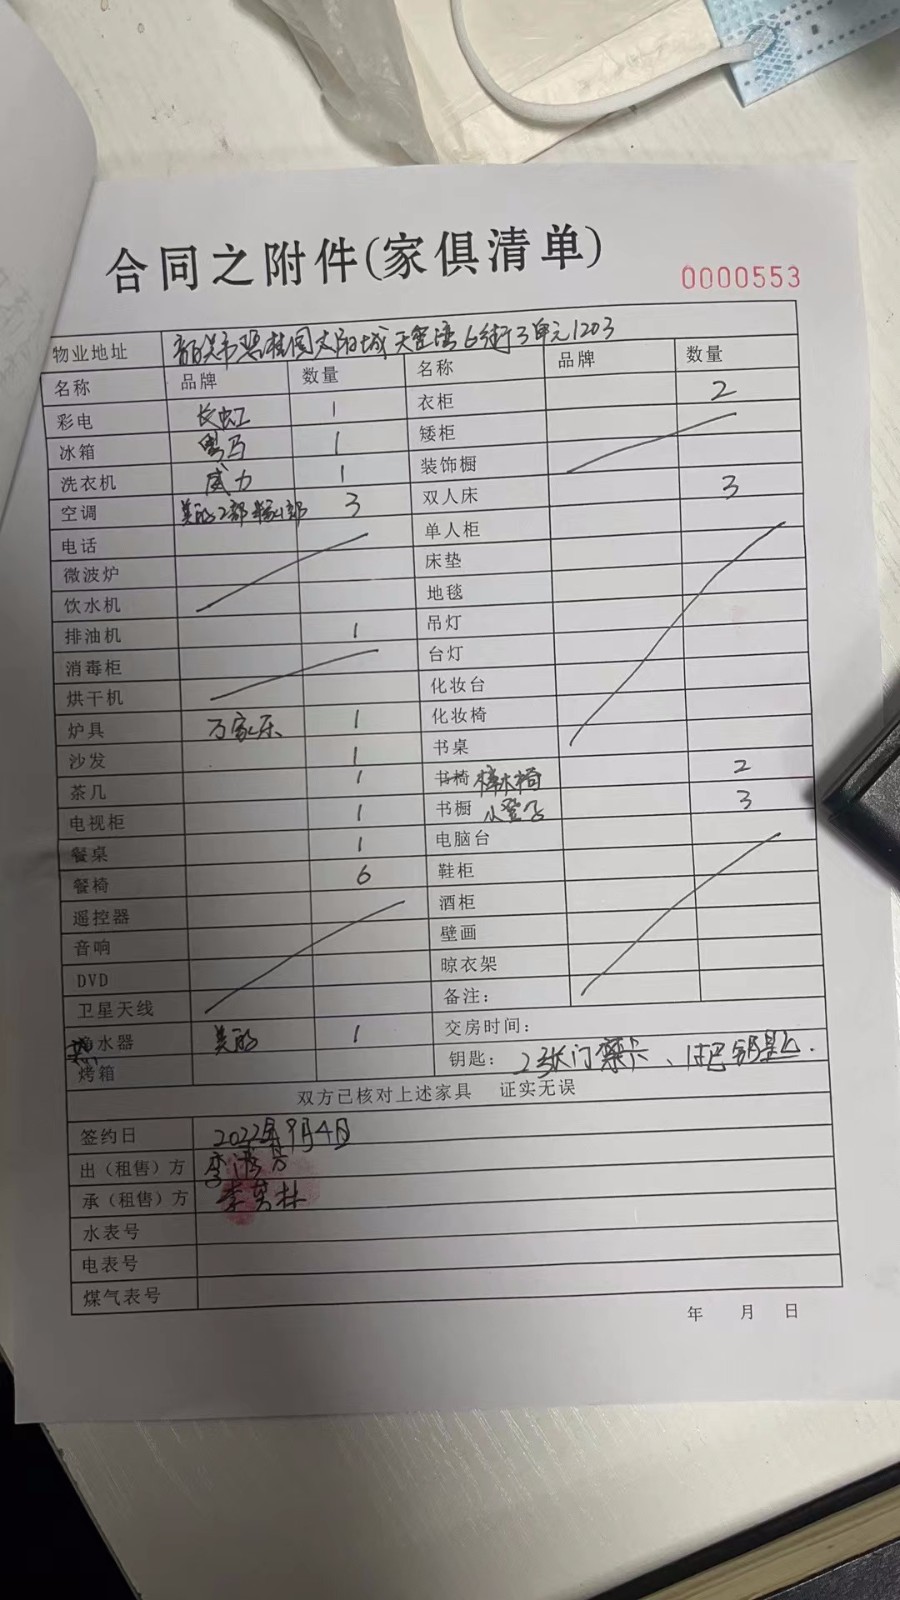 合同之附件(家俱清单)
0000553
物业地址 韶关市碧桂园太阳城天玺湾6街3单元1203
名称 品牌 数量 名称 品牌 数量
彩电 长虹 1 衣柜 2
冰箱 1 矮柜
洗衣机 威力 1 装饰橱
空调 美的2部 1部 3 双人床 3
电话 单人柜
微波炉 床垫
饮水机 地毯
排油机 1 吊灯
消毒柜 台灯
烘干机 化妆台
炉具 万家乐 1 化妆椅
沙发 1 书桌
茶几 1 书椅 2
电视柜 1 书橱 小登子 3
餐桌 1 电脑台
餐椅 6 鞋柜
遥控器 酒柜
音响 壁画
DVD 晾衣架
卫星天线 备注:
热水器 美的 1 交房时间:
烤箱 钥匙: 2张门禁卡、1把钥匙.
双方已核对上述家具 证实无误
签约日 2022年9月4日
出(租售)方 李
承(租售)方 李英林
水表号
电表号
煤气表号
年 月 日